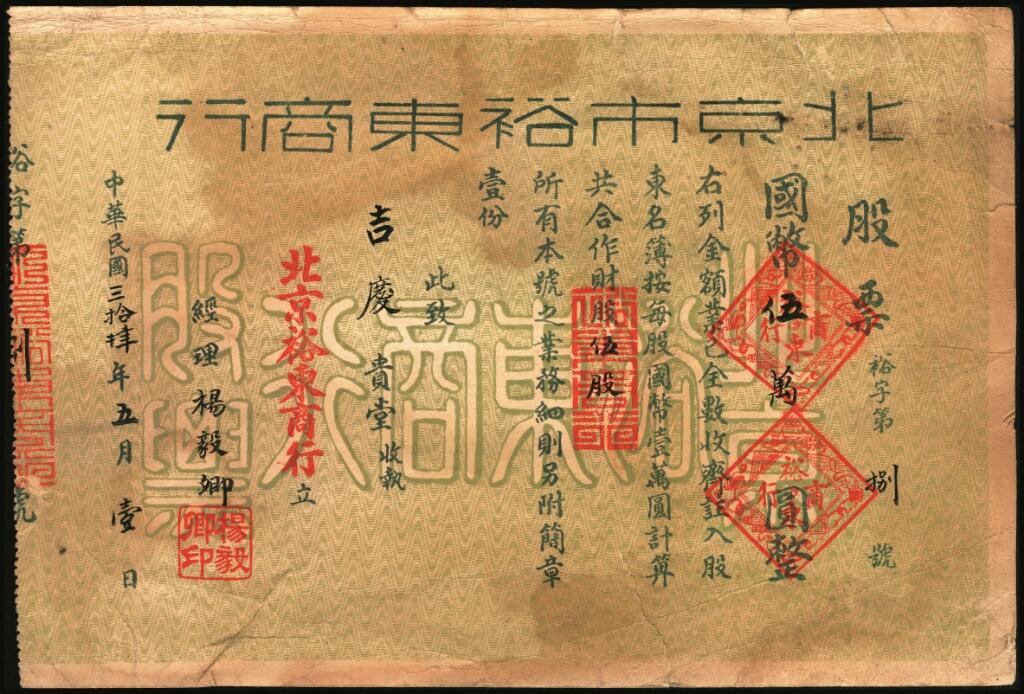 北京市裕東商行
股票
裕字第捌號
國幣伍萬圓整
右列金額業已全數收齊註入股
東名簿按每股國幣壹萬圓計算
共合作財股伍股
所有本號之業務細則另附簡章
壹份
此致
吉慶貴堂收執
北京裕東商行立
經理楊毅卿
楊毅卿印
中華民國三拾肆年五月壹日
裕字第捌號